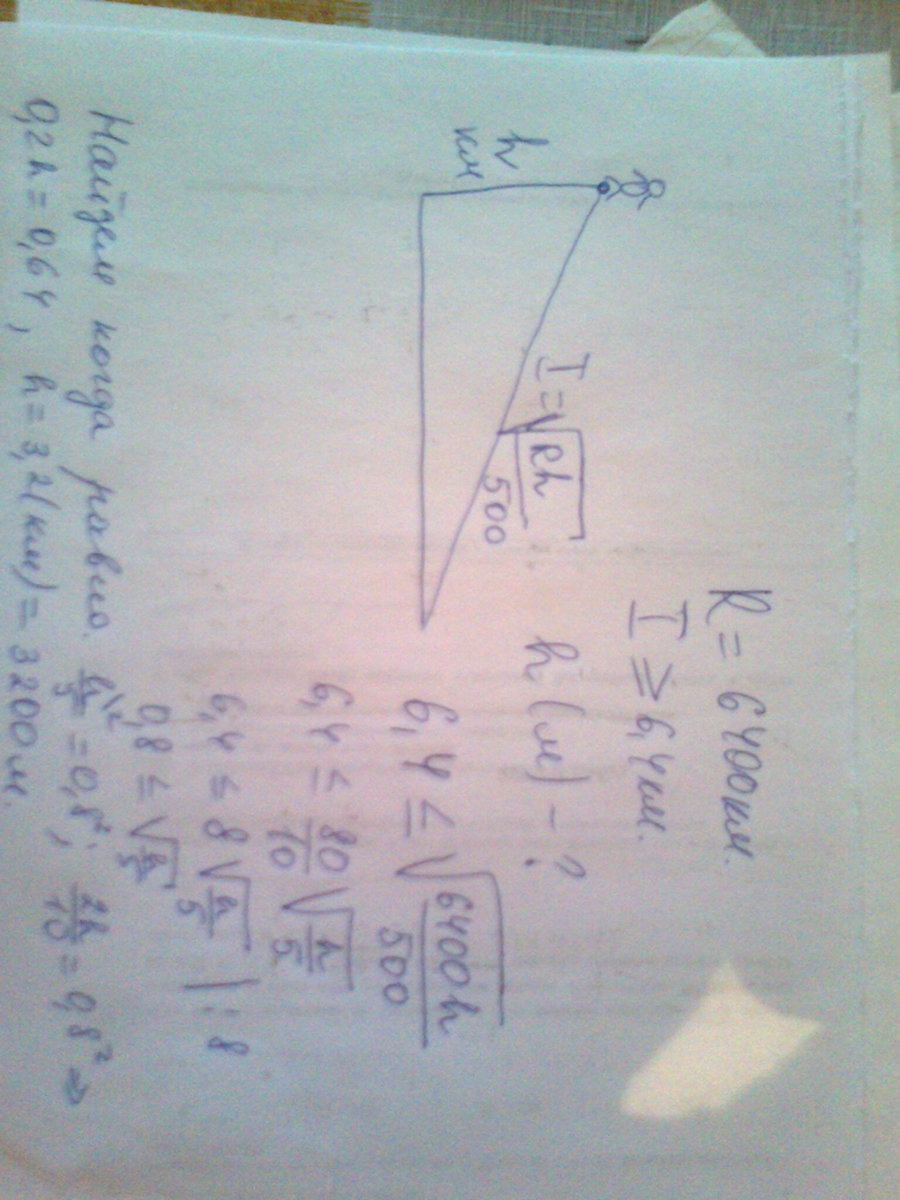 R = 6400км.
I ≥ 6,4 км.
h (м) - ?
h
км
I = √(Rh/500)
6,4 ≤ √(6400h/500)
6,4 ≤ 80/10 √(h/5)
6,4 ≤ 8 √(h/5) | : 8
0,8 ≤ √(h/5)
Найдем когда равно. h\2/5 = 0,8²; 2h/10 = 0,8² ⇒
0,2h = 0,64, h = 3,2(км) = 3200м.